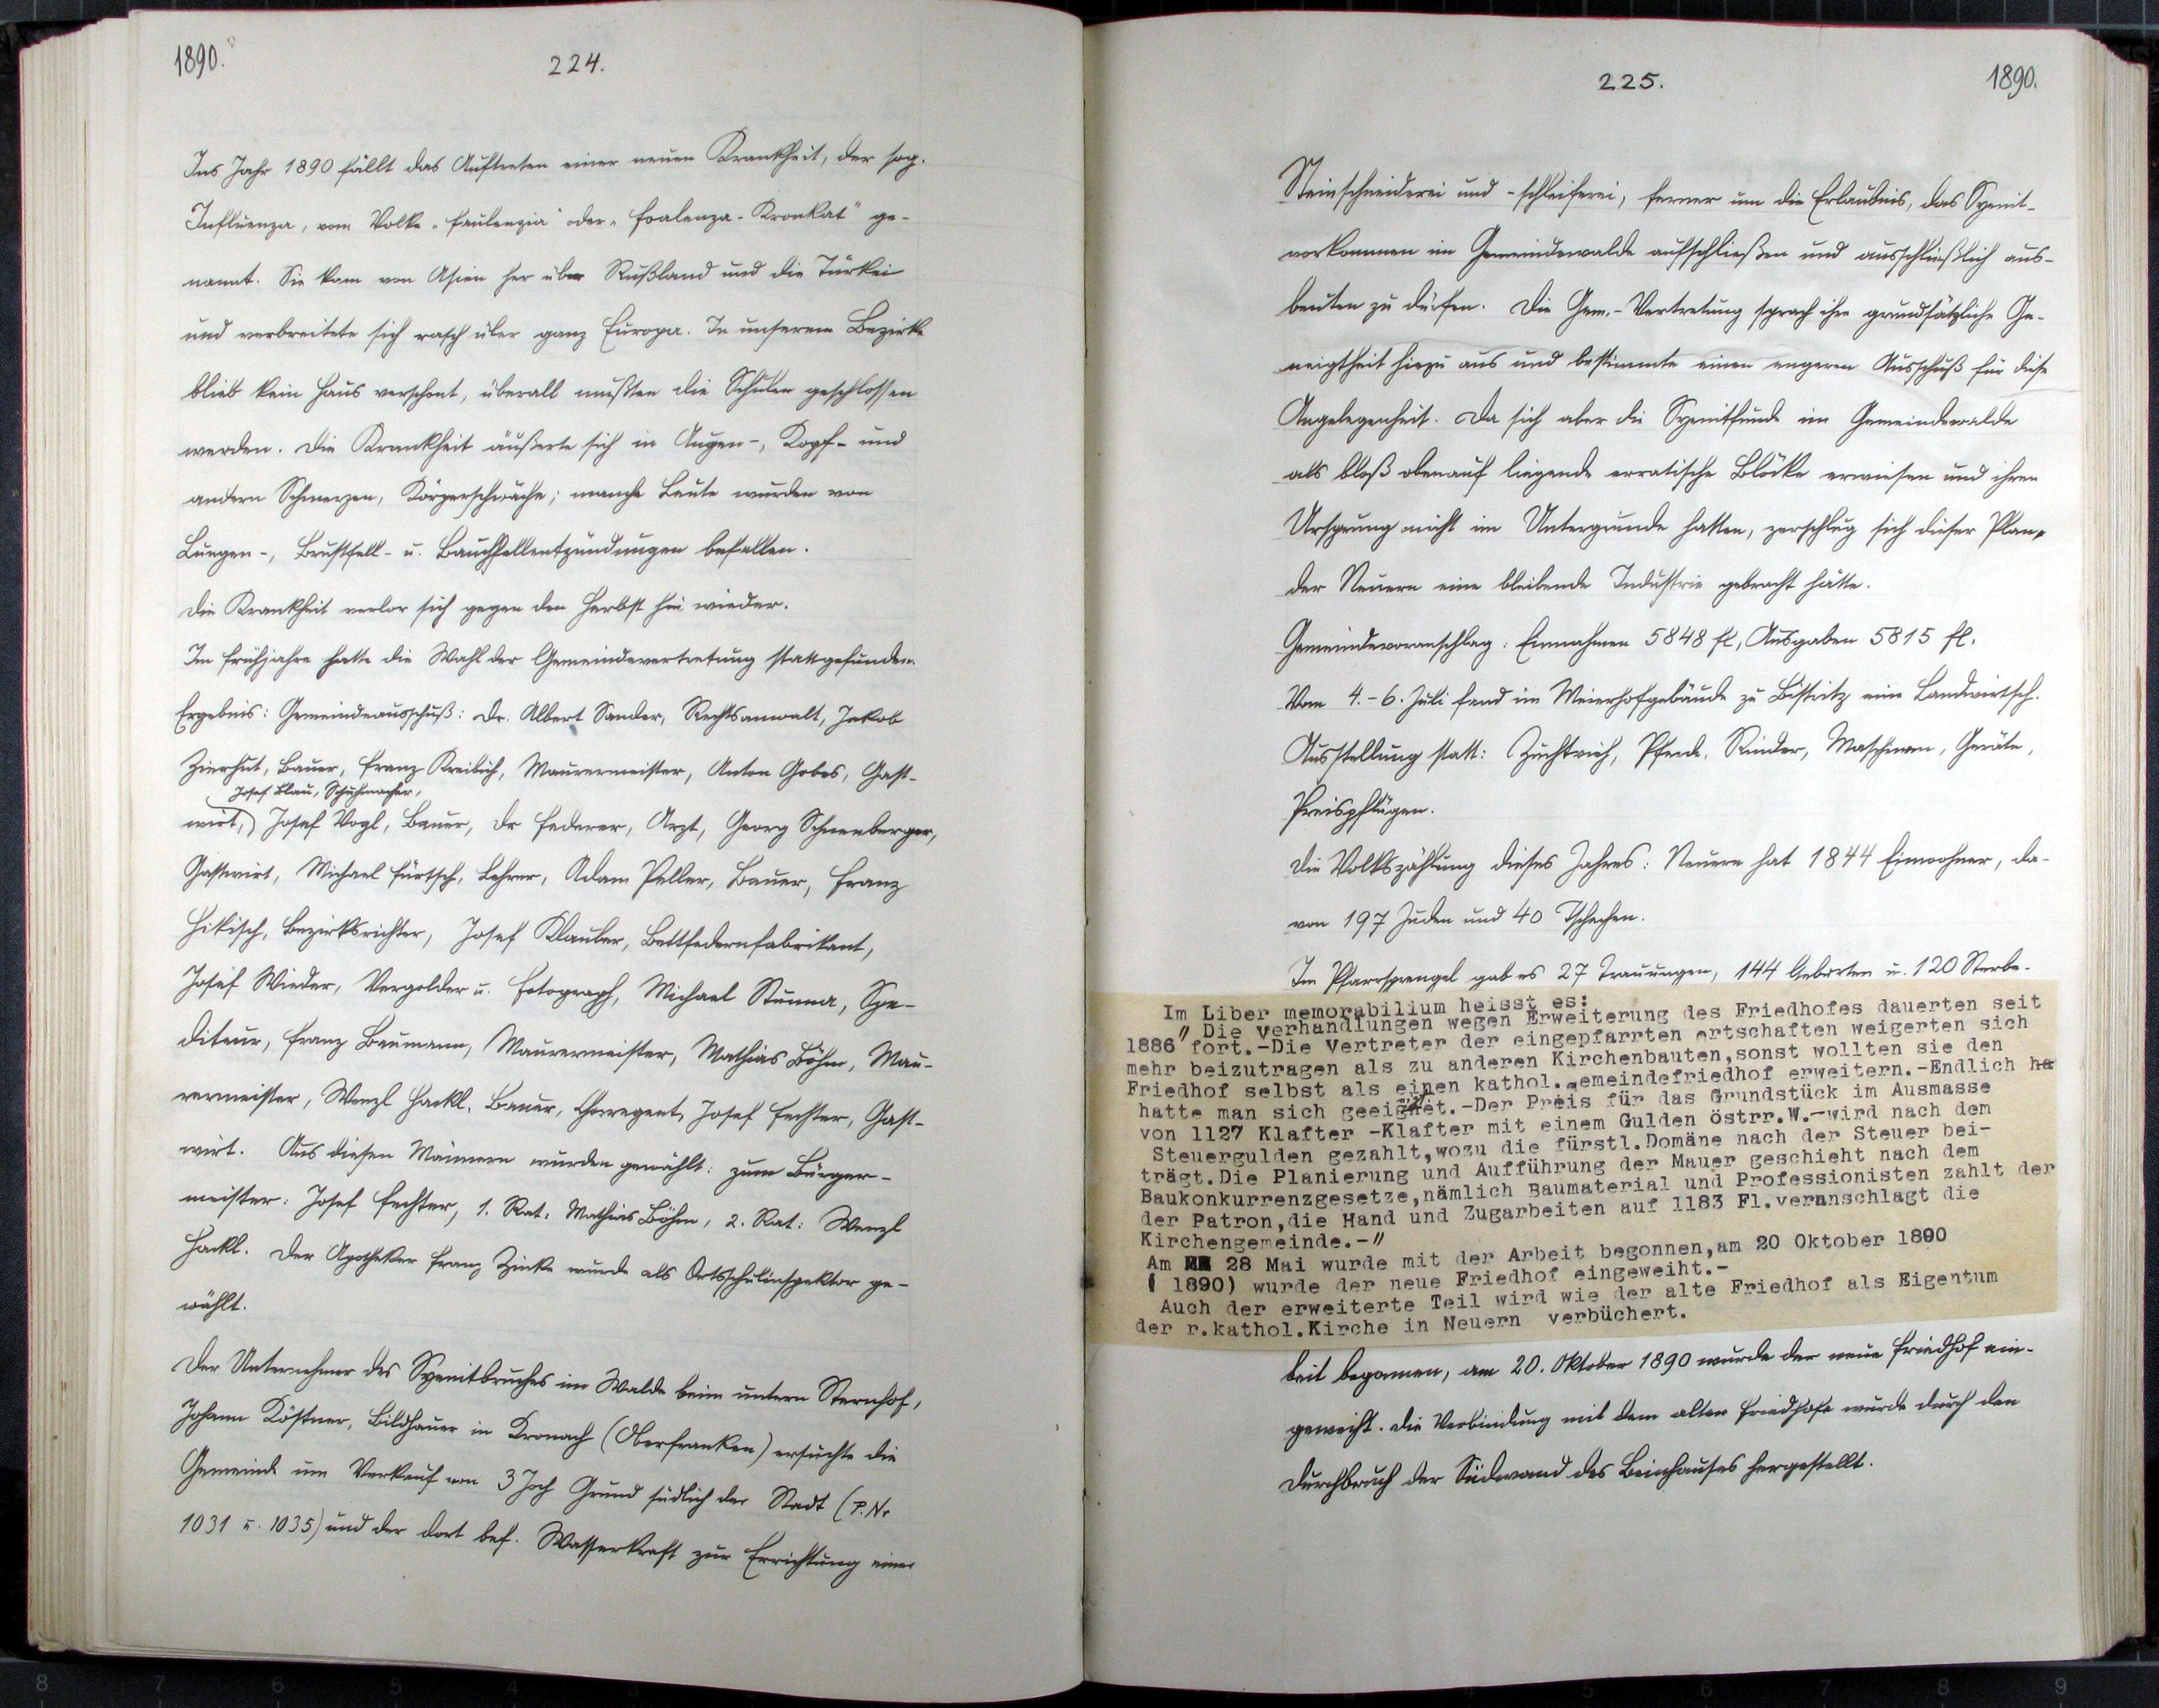 1890.
224.
Ins Jahr 1890 fällt das Auftreten einer neuen Krankheit, der sog.
Influenza, vom Volke „Faulenzia" oder „Foalenza-Kronkat" ge-
nannt. Sie kam von Asien her über Rußland und die Türkei
und verbreitete sich rasch über ganz Europa. In unserem Bezirke
blieb kein Haus verschont, überall mußten die Schulen geschlossen
werden. Die Krankheit äußerte sich in Augen-, Kopf- und
andern Schmerzen, Körperschwäche; manche Leute wurden von
Lungen-, Brustfell- u. Bauchfellentzündungen befallen.
Die Krankheit verlor sich gegen den Herbst hin wieder.
Im Frühjahre hatte die Wahl der Gemeindevertretung stattgefunden.
Ergebnis: Gemeindeausschuß: Dr. Albert Sander, Rechtsanwalt, Jakob
Zierhut, Bauer, Franz Kreibich, Maurermeister, Anton Gobes, Gast-
Josef Blau, Schuhmacher,
wirt, Josef Vogl, Bauer, Dr Federer, Arzt, Georg Schneeberger,
Gastwirt, Michael Fürtsch, Lehrer, Adam Peller, Bauer, Franz
Hikisch, Bezirksrichter, Josef Klauber, Bettfedernfabrikant,
Josef Wieder, Vergolder u. Fotograph, Michael Stunna, Spe-
diteur, Franz Baumann, Maurermeister, Mathias Böhm, Mau-
rermeister, Wenzl Hackl, Bauer, Chorregent, Josef Fechter, Gast-
wirt. Aus diesen Männern wurden gewählt: zum Bürger-
meister: Josef Fechter, 1. Rat: Mathias Böhm, 2. Rat: Wenzl
Hackl. Der Apotheker Franz Zinke wurde als Ortsschulinspektor ge-
wählt.
Der Unternehmer des Syenitbruches im Walde beim untern Sternhof,
Johann Köstner, Bildhauer in Kronach (Oberfranken) ersuchte die
Gemeinde um Verkauf von 3 Joch Grund südlich der Stadt (P. Nr
1031 u. 1035) und der dort bef. Wasserkraft zur Errichtung einer
225.
1890.
Steinschneiderei und -schleiferei, ferner um die Erlaubnis, das Syenit-
vorkommen im Gemeindewalde aufschließen und ausschließlich aus-
beuten zu dürfen. Die Gem.-Vertretung sprach ihre grundsätzliche Ge-
neigtheit hiezu aus und bestimmte einen engeren Ausschuß für diese
Angelegenheit. Da sich aber die Syenitfunde im Gemeindewalde
als bloß obenauf liegende erratische Blöcke erwiesen und ihren
Ursprung nicht im Untergrunde hatten, zerschlug sich dieser Plan,
der Neuern eine bleibende Industrie gebracht hätte.
Gemeindevoranschlag: Einnahmen 5848 fl, Ausgaben 5815 fl.
Vom 4.-6. Juli fand im Meierhofgebäude zu Bistritz eine Landwirtsch.
Ausstellung statt: Zuchtvieh, Pferde, Rinder, Maschinen, Geräte,
Preispflügen.
Die Volkszählung dieses Jahres: Neuern hat 1844 Einwohner, da-
von 197 Juden und 40 Tschechen.
Im Pfarrsprengel gab es 27 Trauungen, 144 Geburten u. 120 Sterbe-
Im Liber memorabilium heisst es:
" Die Verhandlungen wegen Erweiterung des Friedhofes dauerten seit
1886 fort.-Die Vertreter der eingepfarrten Ortschaften weigerten sich
mehr beizutragen als zu anderen Kirchenbauten,sonst wollten sie den
Friedhof selbst als einen kathol.Gemeindefriedhof erweitern.-Endlich ha
hatte man sich geeignet.-Der Preis für das Grundstück im Ausmasse
von 1127 Klafter -Klafter mit einem Gulden östrr.W.-wird nach dem
Steuergulden gezahlt,wozu die fürstl.Domäne nach der Steuer bei-
trägt.Die Planierung und Aufführung der Mauer geschieht nach dem
Baukonkurrenzgesetze,nämlich Baumaterial und Professionisten zahlt der
der Patron,die Hand und Zugarbeiten auf 1183 Fl.veranschlagt die
Kirchengemeinde.-"
Am 28 Mai wurde mit der Arbeit begonnen,am 20 Oktober 1890
( 1890) wurde der neue Friedhof eingeweiht.-
Auch der erweiterte Teil wird wie der alte Friedhof als Eigentum
der r.kathol.Kirche in Neuern verbüchert.
beit begonnen, am 20. Oktober 1890 wurde der neue Friedhof ein-
geweiht. Die Verbindung mit dem alten Friedhofe wurde durch den
Durchbruch der Südwand des Beinhauses hergestellt.